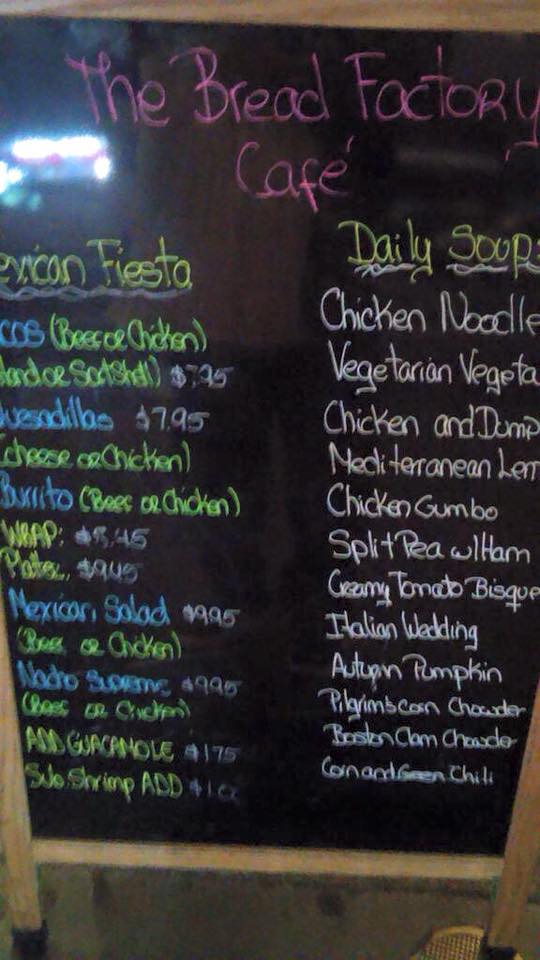 The Bread Factory
Café
exican Fiesta
cos (Beef or Chicken)
$7.95
uesadillas $7.95
Cheese or Chicken)
Burrito (Beef or Chicken)
WRAP:
Platter. $9.45
Mexican Salad $9.95
(Beef or Chicken)
Nacho Supreme $9.95
(Beef or Chicken)
ADD GUACAMOLE $1.75
Sub. Shrimp ADD
Daily Soups
Chicken Noodle
Vegetarian Vegeta
Chicken and Dump
Mediterranean Lem
Chicken Gumbo
Split Pea w/Ham
Creamy Tomato Bisque
Italian Wedding
Autumn Pumpkin
Pilgrims corn Chowder
Boston Clam Chowder
Corn and Green Chili